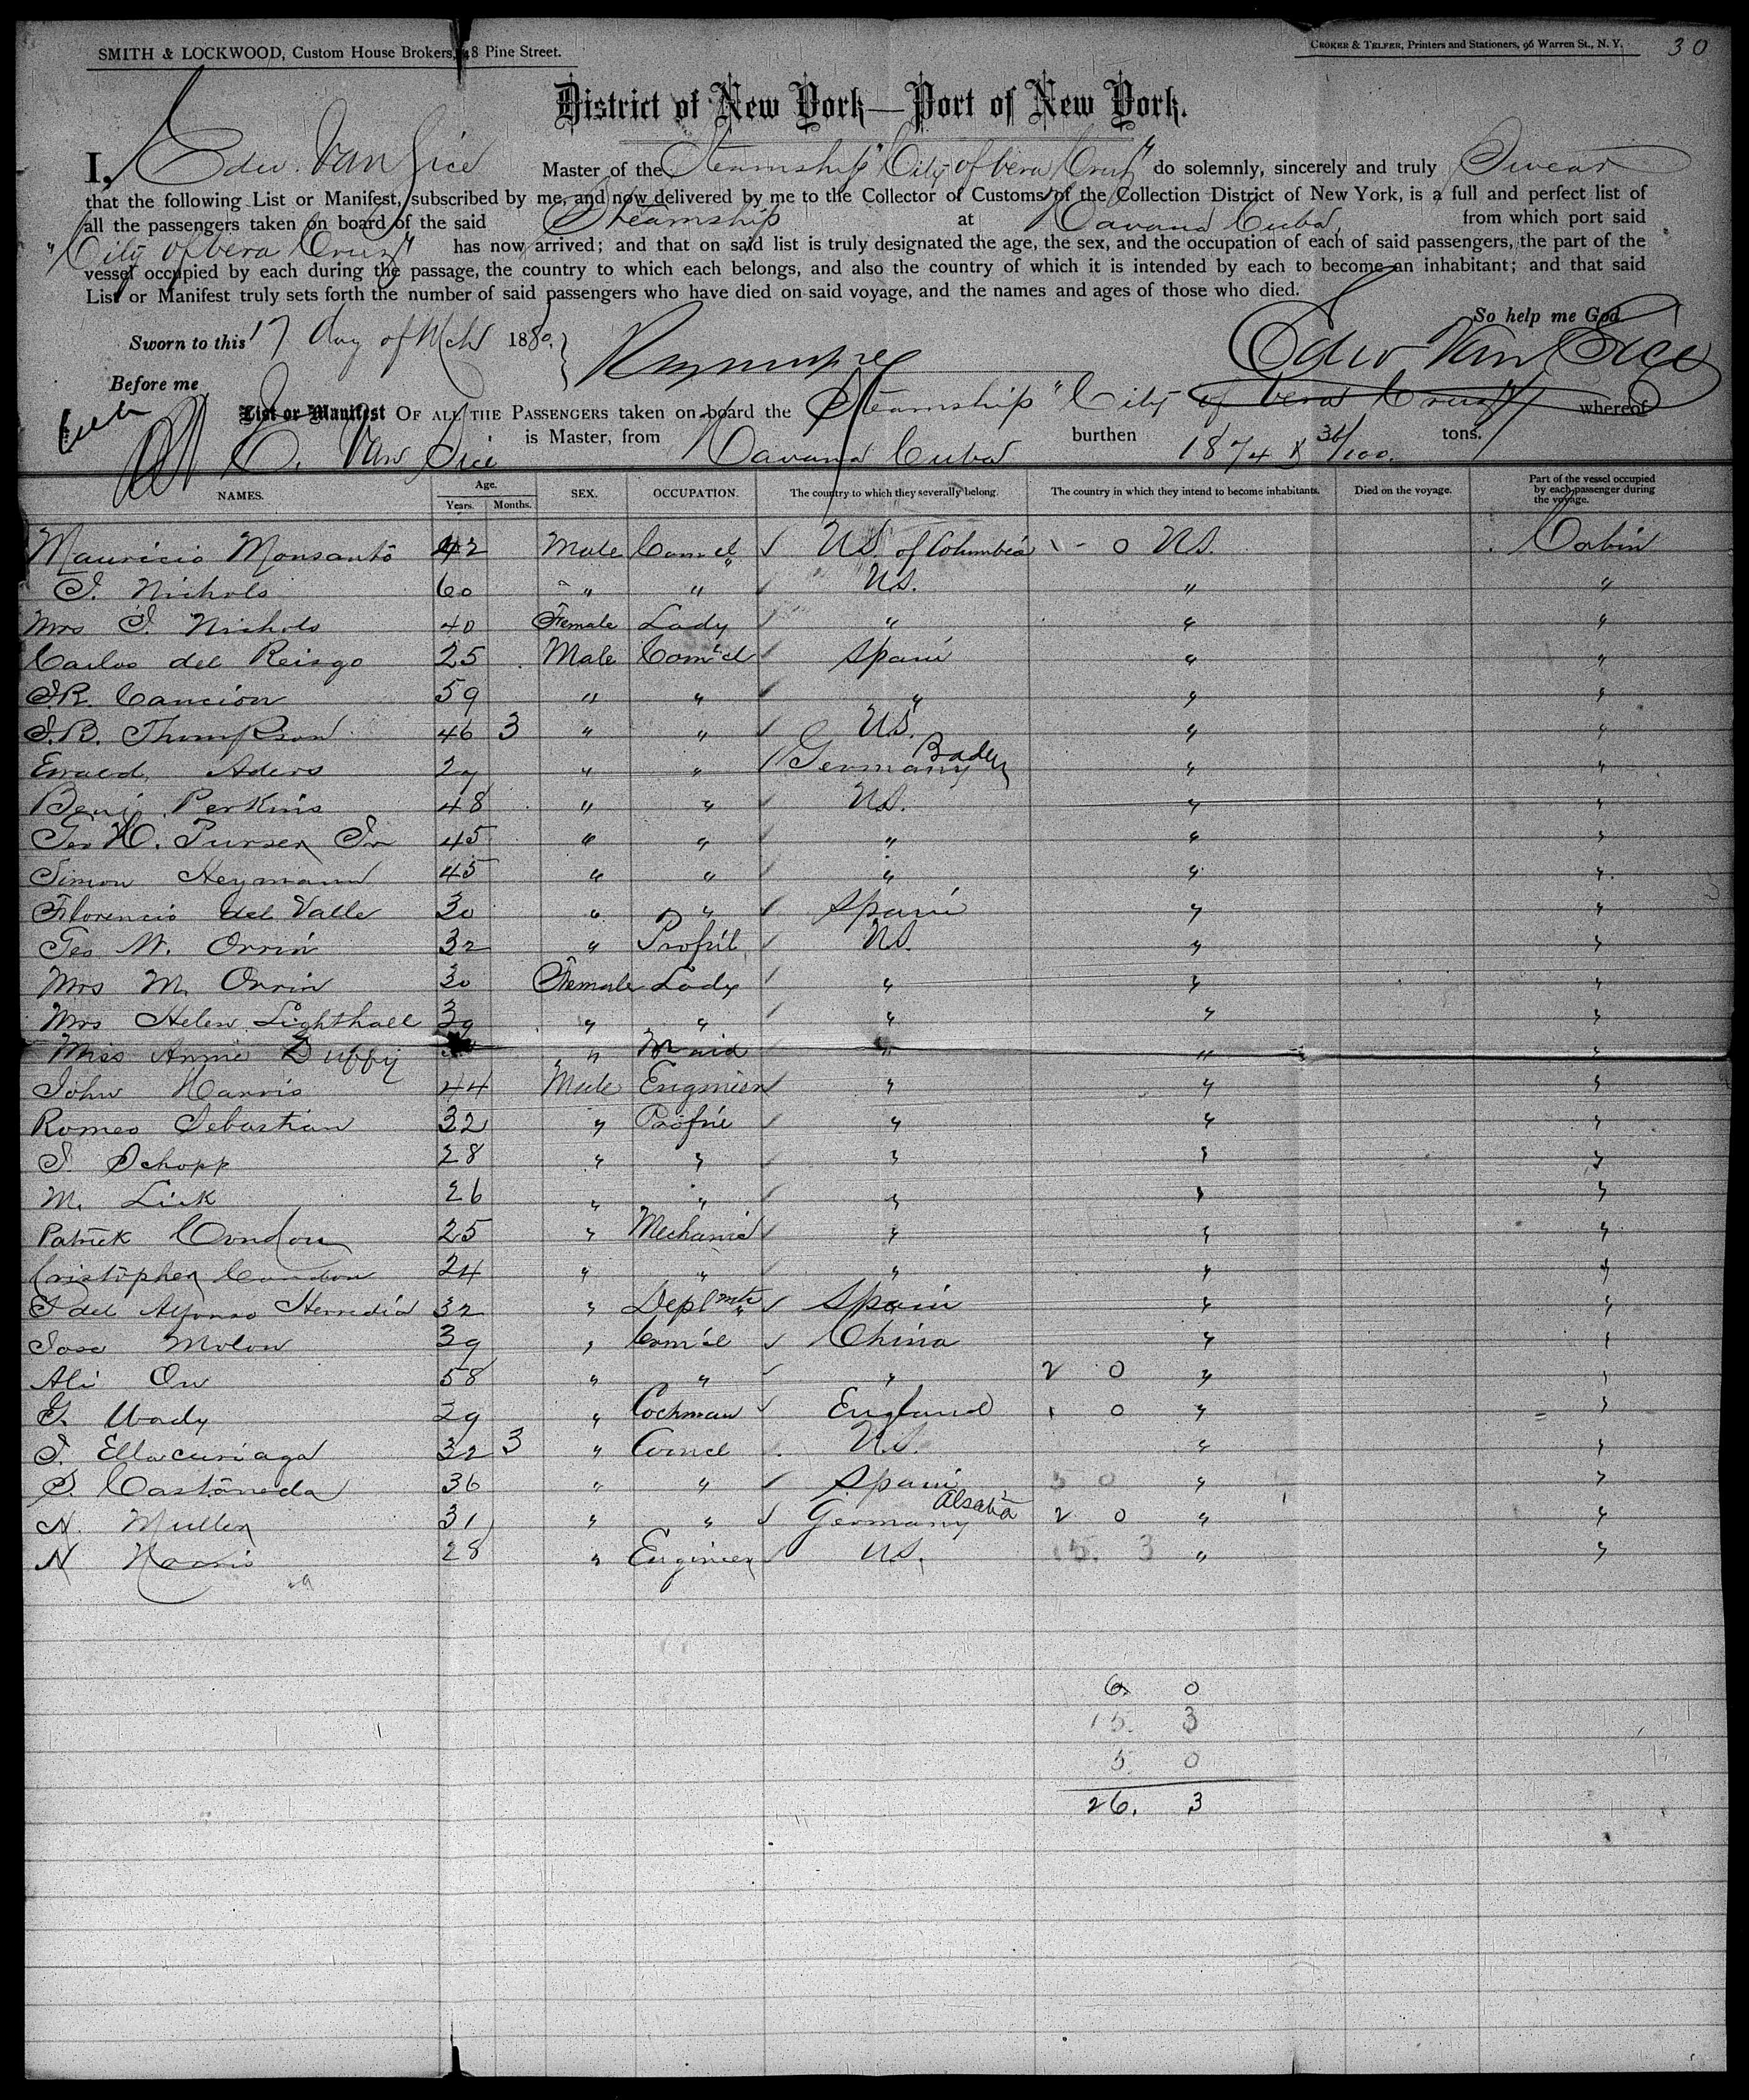 SMITH & LOCKWOOD, Custom House Brokers, 48 Pine Street.
CROKER & TELFER, Printers and Stationers, 96 Warren St., N. Y. 30
District of New York—Port of New York.
I, Edw. Van Sice Master of the Steamship "City of Vera Cruz" do solemnly, sincerely and truly Swear
that the following List or Manifest, subscribed by me, and now delivered by me to the Collector of Customs of the Collection District of New York, is a full and perfect list of
all the passengers taken on board of the said Steamship at Havana Cuba, from which port said
"City of Vera Cruz" has now arrived; and that on said list is truly designated the age, the sex, and the occupation of each of said passengers, the part of the
vessel occupied by each during the passage, the country to which each belongs, and also the country of which it is intended by each to become an inhabitant; and that said
List or Manifest truly sets forth the number of said passengers who have died on said voyage, and the names and ages of those who died.
So help me God
Sworn to this 17 day of Mch 1880. Edw Van Sice
Before me
List or Manifest OF ALL THE PASSENGERS taken on board the Steamship "City of Vera Cruz" whereof
E. Van Sice is Master, from Havana Cuba burthen 1874 & 36/100 tons.
NAMES. Age. Years. Months. SEX. OCCUPATION. The country to which they severally belong. The country in which they intend to become inhabitants. Died on the voyage. Part of the vessel occupied by each passenger during the voyage.
Mauricio Monsanto 42 Male Com'cl U.S. of Columbia 1 - 0 U.S. Cabin
J. Nichols 60 " " U.S. " "
Mrs J. Nichols 40 Female Lady " " "
Carlos del Reisgo 25 Male Com'cl Spain " "
J.R. Cancion 59 " " " " "
J.B. Thompson 46 3 " " U.S. " "
Ewald Aders 29 " " Germany Baden " "
Benj. Perkins 48 " " U.S. " "
Geo H. Purser Jr 45 " " " " "
Simon Heymann 45 " " " " "
Florencio del Valle 30 " " Spain " "
Geo W. Orrin 32 " Prof'sl U.S. " "
Mrs M. Orrin 30 Female Lady " " "
Mrs Helen Lighthall 39 " " " " "
Miss Annie Duffy " Maid " " "
John Harris 44 Male Engineer " " "
Romeo Sebastian 32 " Prof'sl " " "
J. Schopp 28 " " " " "
M. Lick 26 " " " " "
Patrick Condon 25 " Mechanic " " "
Cristopher Condon 24 " " " " "
J del Alfonso Heredia 32 " Deplmte Spain " "
Jose Molon 39 " Com'cl China " "
Ali On 58 " " " 2 0 " "
G. Wady 29 " Cochman England 1 0 " "
J. Ellacuriaga 32 3 " Comcl U.S. " "
S. Castaneda 36 " " Spain 5 0 " "
N. Muller 31 " " Germany Alsatia 2 0 " "
N Harris 28 " Engineer U.S. 15. 3 " "
6. 0
15. 3
5 0
26. 3